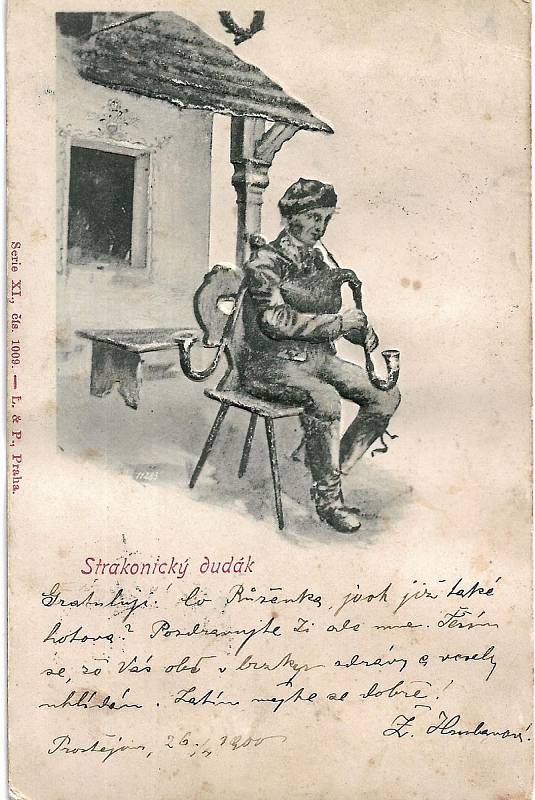 Serie XI., čís. 1009. — L. & P., Praha.
11243
Strakonický dudák
Gratuluji! Co Růženka, jest již také
hotova? Pozdravujte ji ode mne. Těším
se, že Vás obě v brzku zdrávy a vesely
uhlídám. Zatím mějte se dobře!
Prostějov, 26./4 1900
Ž.